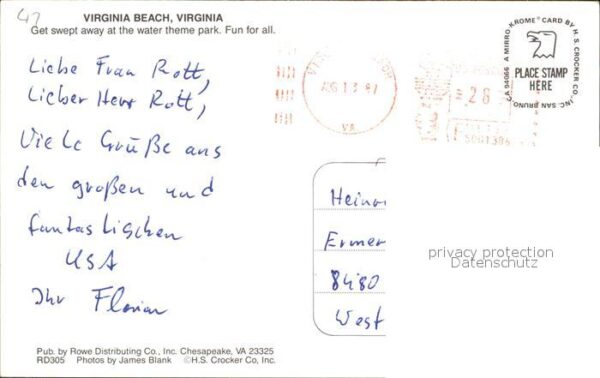 47
VIRGINIA BEACH, VIRGINIA
Get swept away at the water theme park. Fun for all.
Liebe Frau Rott,
Lieber Herr Rott,
Viele Grüße aus
den großen und
fantastischen
USA
Ihr Florian
AUG 13 87
VA
28
A MIRRO-KROME® CARD BY H. S. CROCKER CO., INC. SAN BRUNO, CA 94066
PLACE STAMP
HERE
Heinr
Ermer
8480
West
privacy protection
Datenschutz
Pub. by Rowe Distributing Co., Inc. Chesapeake, VA 23325
RD305 Photos by James Blank ©H.S. Crocker Co, Inc.